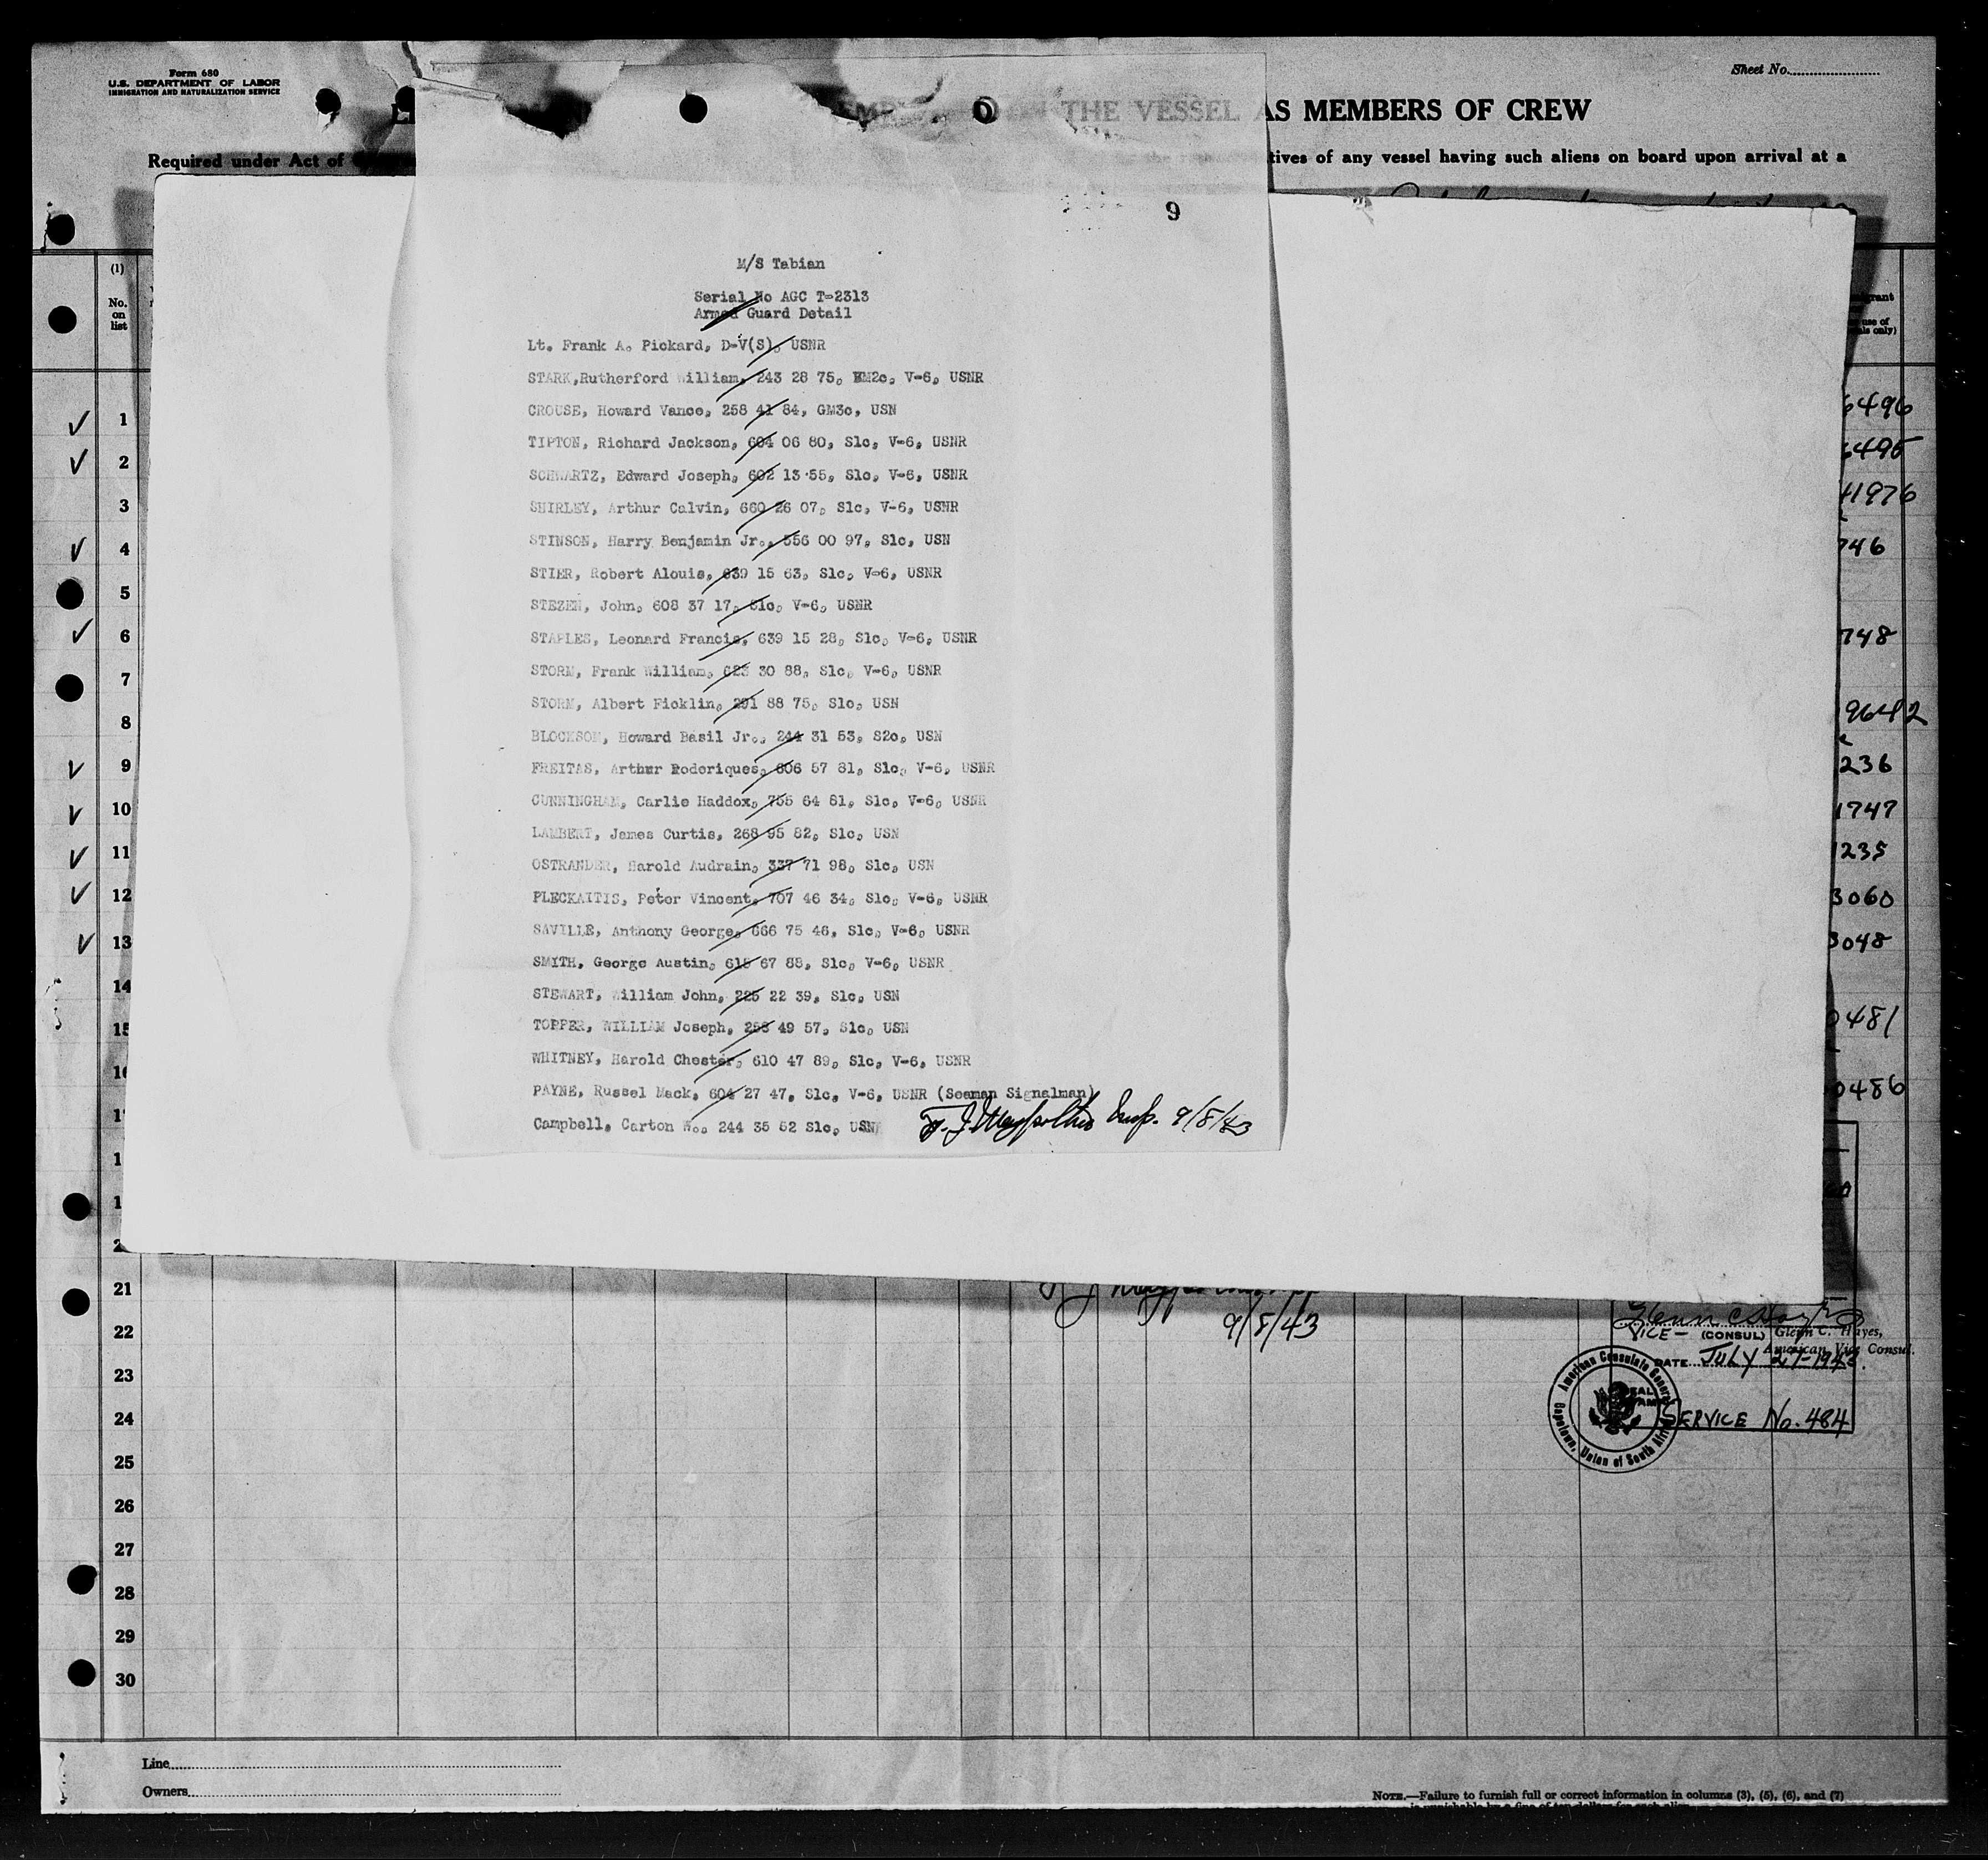 Form 680
U.S. DEPARTMENT OF LABOR
IMMIGRATION AND NATURALIZATION SERVICE
Sheet No.
THE VESSEL AS MEMBERS OF CREW
Required under Act of
tives of any vessel having such aliens on board upon arrival at a
9
M/S Tabian
Serial No AGC T-2313
Armed Guard Detail
Lt. Frank A. Pickard, D-V(S), USNR
STARK,Rutherford William, 243 28 75, BM2c, V-6, USNR
CROUSE, Howard Vance, 258 41 84, GM3c, USN
TIPTON, Richard Jackson, 604 06 80, S1c, V-6, USNR
SCHWARTZ, Edward Joseph, 602 13 55, S1c, V-6, USNR
SHIRLEY, Arthur Calvin, 660 26 07, S1c, V-6, USNR
STINSON, Harry Benjamin Jr., 556 00 97, S1c, USN
STIER, Robert Alouis, 639 15 63, S1c, V-6, USNR
STEZEN, John, 608 37 17, S1c, V-6, USNR
STAPLES, Leonard Francis, 639 15 28, S1c, V-6, USNR
STORM, Frank William, 623 30 88, S1c, V-6, USNR
STORM, Albert Ficklin, 291 88 75, S1c, USN
BLOCKSOM, Howard Basil Jr., 244 31 53, S2c, USN
FREITAS, Arthur Roderiques, 806 57 81, S1c, V-6, USNR
CUNNINGHAM, Carlie Haddox, 755 64 81, S1c, V-6, USNR
LAMBERT, James Curtis, 268 95 82, S1c, USN
OSTRANDER, Harold Audrain, 337 71 98, S1c, USN
PLECKAITIS, Peter Vincent, 707 46 34, S1c, V-6, USNR
SAVILLE, Anthony George, 666 75 46, S1c, V-6, USNR
SMITH, George Austin, 615 67 88, S1c, V-6, USNR
STEWART, William John, 225 22 39, S1c, USN
TOPPER, WILLIAM Joseph, 258 49 57, S1c, USN
WHITNEY, Harold Chester, 610 47 89, S1c, V-6, USNR
PAYNE, Russel Mack, 604 27 47, S1c, V-6, USNR (Seaman Signalman)
Campbell, Carton W., 244 35 52 S1c, USN
Insp. 9/8/43
(1)
No.
on
list
1
2
3
4
5
6
7
8
9
10
11
12
13
14
15
21
22
23
24
25
26
27
28
29
30
6496
6495
41976
746
748
9642
236
1747
1235
3060
3048
0481
0486
9/8/43
Glenn C Hayes
VICE- (CONSUL) Glenn C. Hayes,
American Vice Consul.
DATE JULY 27-1943.
SERVICE No. 484
American Consulate General
Capetown, Union of South Africa
Line
Owners
NOTE.—Failure to furnish full or correct information in columns (3), (5), (6), and (7)